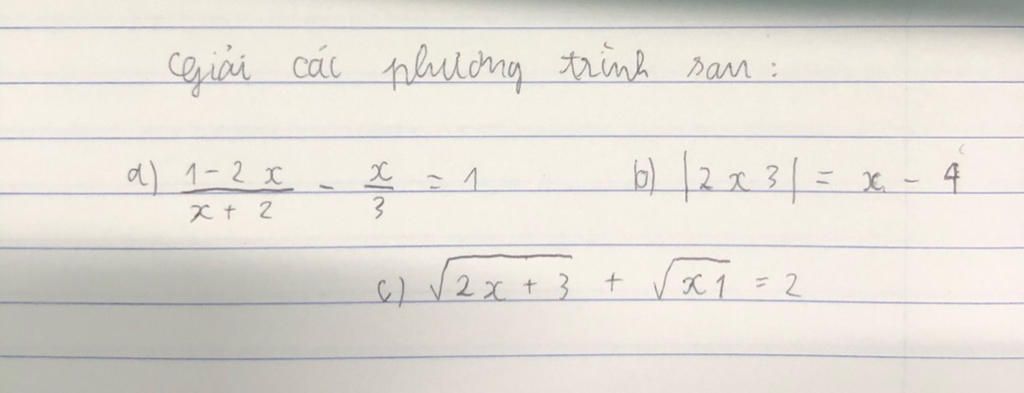 Giải các phương trình sau:
a) \frac{1-2x}{x+2} - \frac{x}{3} = 1 b) |2x3| = x - 4
c) \sqrt{2x+3} + \sqrt{x1} = 2